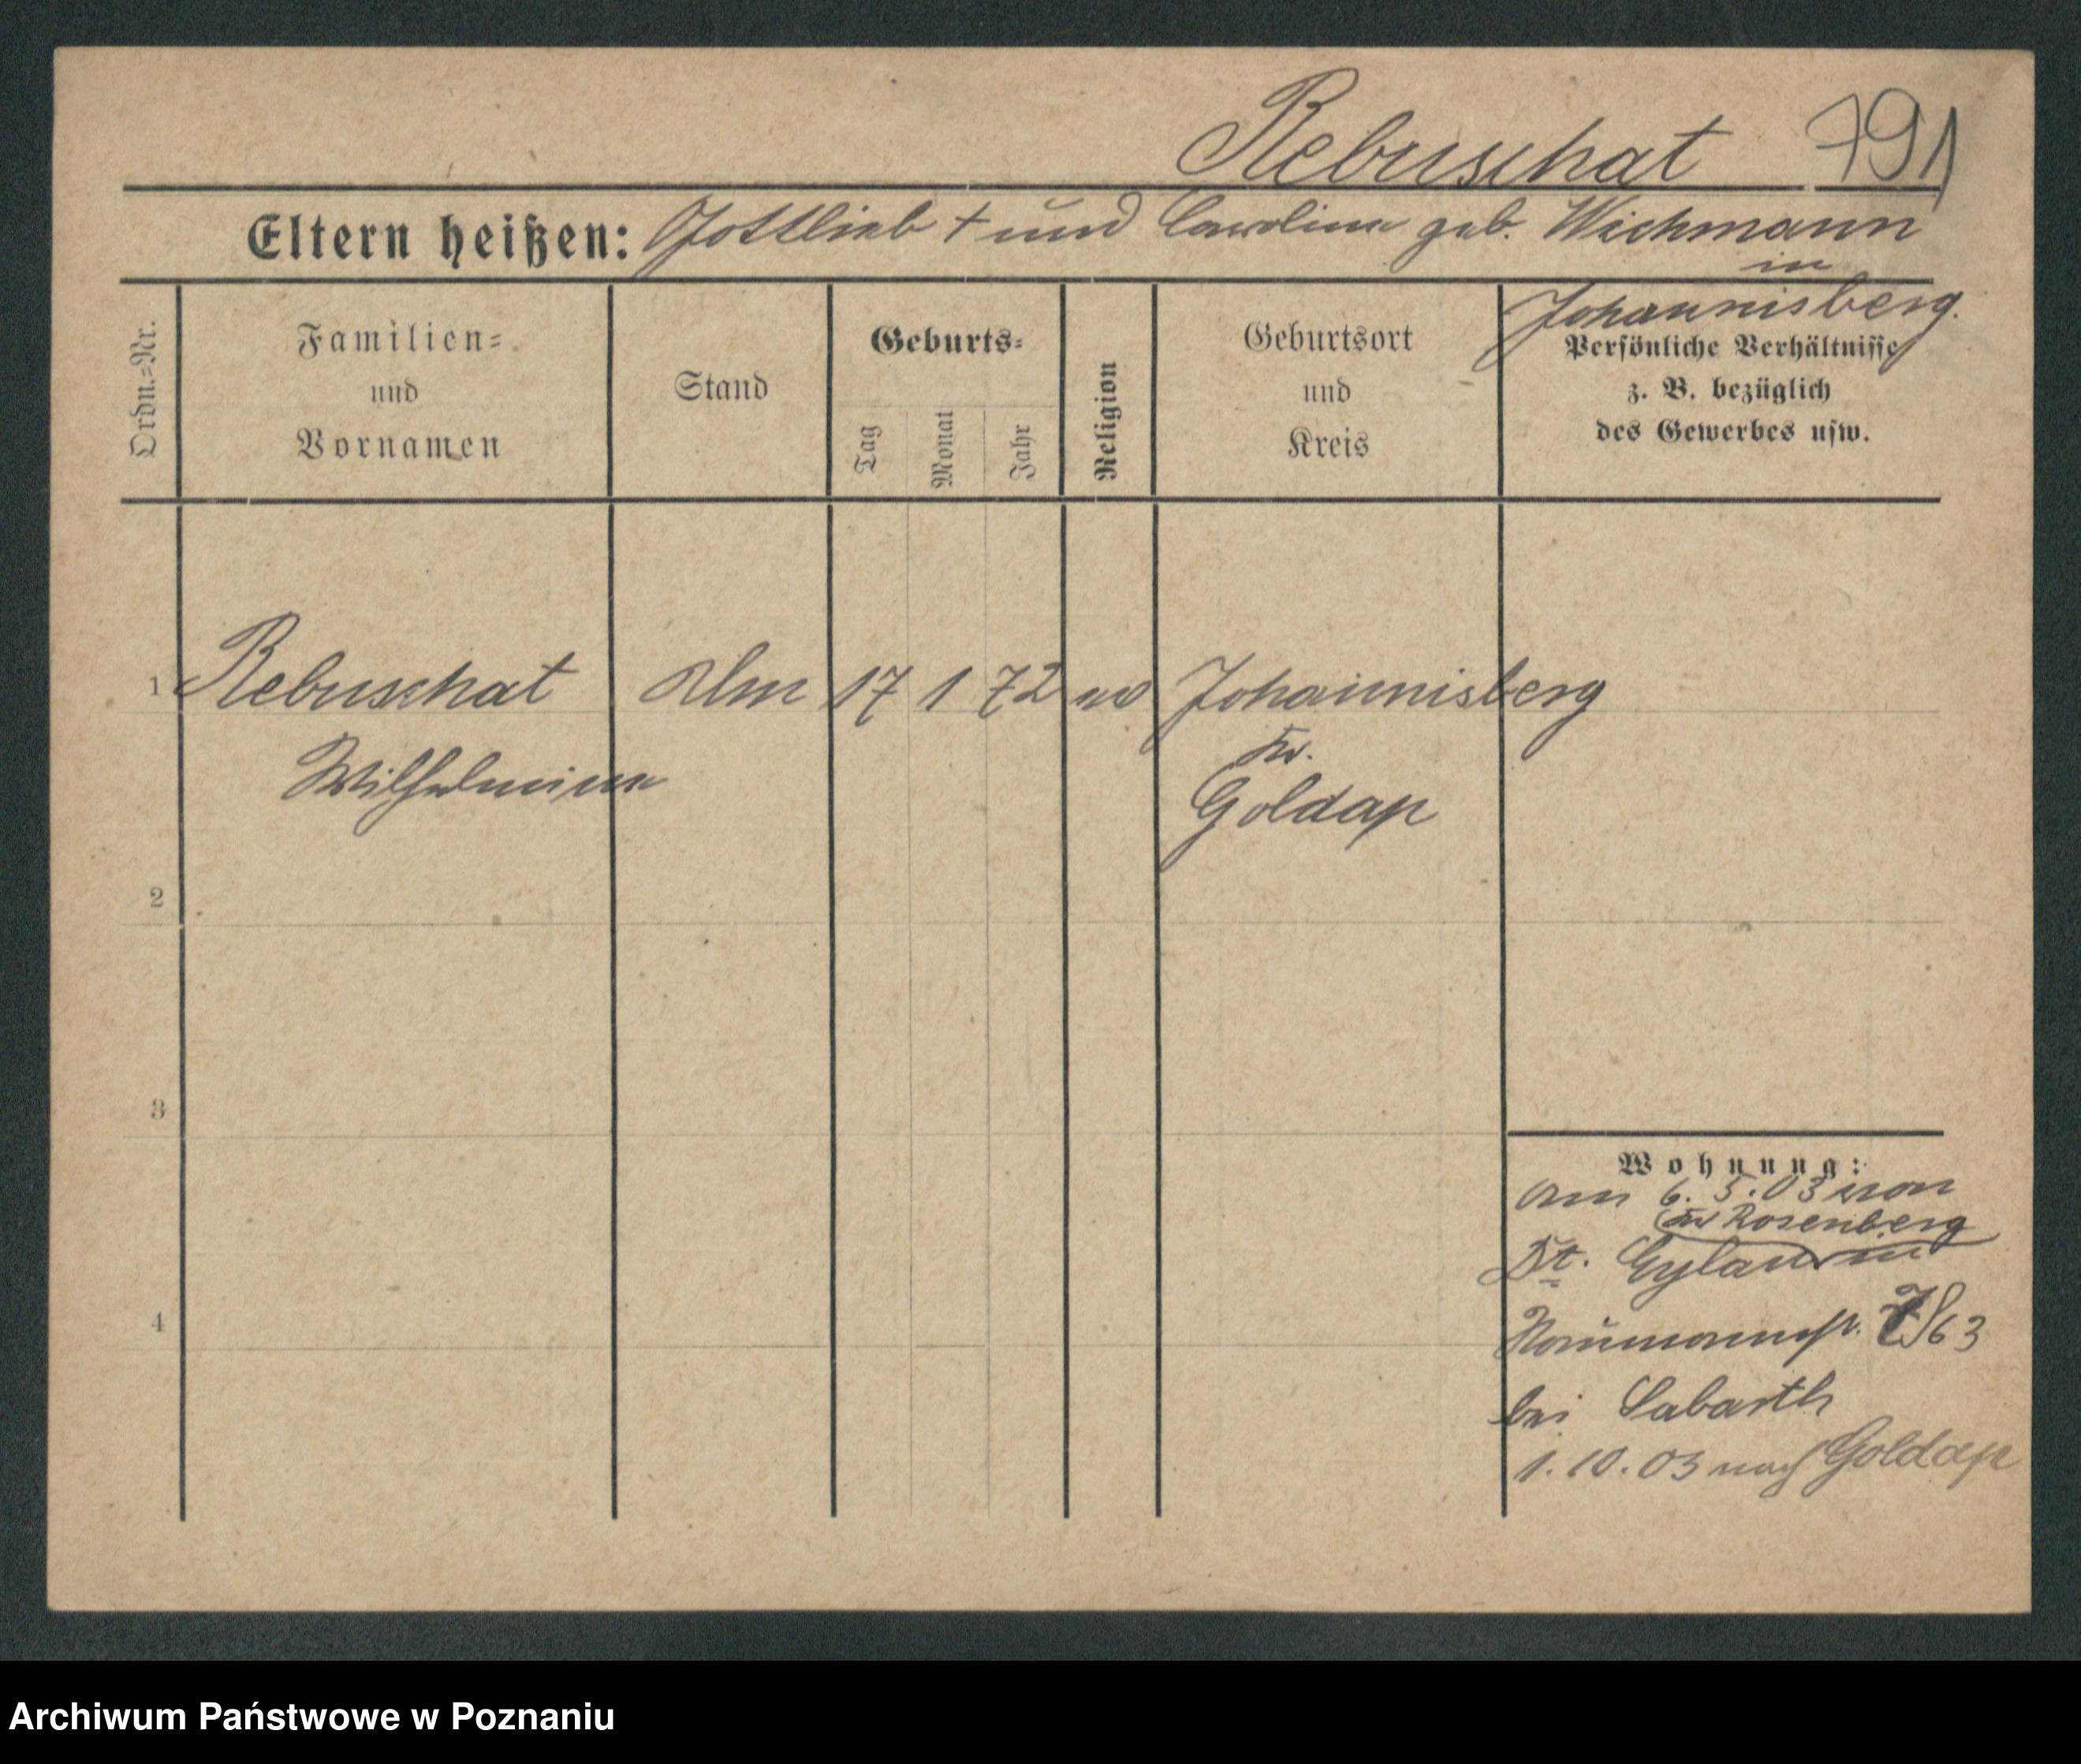 Rebuschat 791
Eltern heißen: Gottlieb † und Caroline geb. Wichmann
in
Johannisberg.
Ordn.=Nr.
Familien=
und
Vornamen
Stand
Geburts=
Tag
Monat
Jahr
Religion
Geburtsort
und
Kreis
Persönliche Verhältnisse
z. B. bezüglich
des Gewerbes usw.
1 Rebuschat 17 1 72 ev Johannisberg
Wilhelmine
Kr.
Goldap
2
3
4
Wohnung:
am 6. 5. 03 von
Kr Rosenberg
Dt. Eylau in
Naumannstr. 7/63
bei Labarth
1. 10. 03 nach Goldap
Archiwum Państwowe w Poznaniu